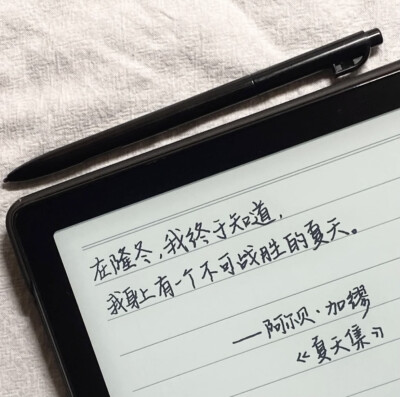 在隆冬,我终于知道,
我身上有一个不可战胜的夏天。
——阿尔贝·加缪
《夏天集》